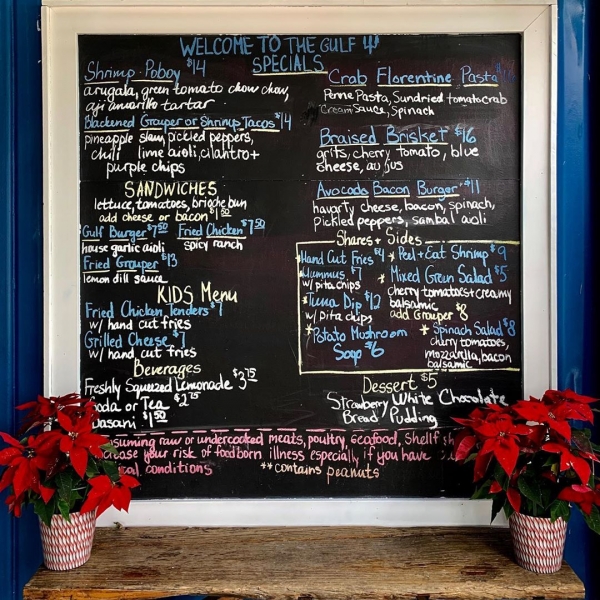 WELCOME TO THE GULF
SPECIALS
Shrimp Poboy $14
arugala, green tomato chow chow,
aji amarillo tartar
Blackened Grouper or Shrimp Tacos $14
pineapple slaw, pickled peppers,
chili lime aioli, cilantro +
purple chips
SANDWICHES
lettuce, tomatoes, brioche bun
add cheese or bacon $1.50
Gulf Burger $7.50 Fried Chicken $7.50
house garlic aioli spicy ranch
Fried Grouper $13
lemon dill sauce
KIDS Menu
Fried Chicken Tenders $7
w/ hand cut fries
Grilled Cheese $7
w/ hand cut fries
Beverages
Freshly Squeezed Lemonade $3.75
Soda or Tea $2.75
Dasani $1.50
Crab Florentine Pasta
Penne Pasta, Sundried tomato crab
Cream Sauce, Spinach
Braised Brisket $16
grits, cherry tomato, blue
cheese, au jus
Avocado Bacon Burger $11
havarty cheese, bacon, spinach,
pickled peppers, sambal aioli
Shares + Sides
Hand Cut Fries $4
Hummus $7
w/ pita chips
*Tuna Dip $12
w/ pita chips
*Potato Mushroom
Soup $6
* Peel + Eat Shrimp $9
* Mixed Green Salad $5
cherry tomatoes + creamy
balsamic
add Grouper $8
* Spinach Salad $8
cherry tomatoes,
mozzarella, bacon
balsamic
Dessert $5
Strawberry White Chocolate
Bread Pudding
suming raw or undercooked meats, poultry, seafood, shellf
crease your risk of foodborn illness especially if you have
cal conditions **contains peanuts